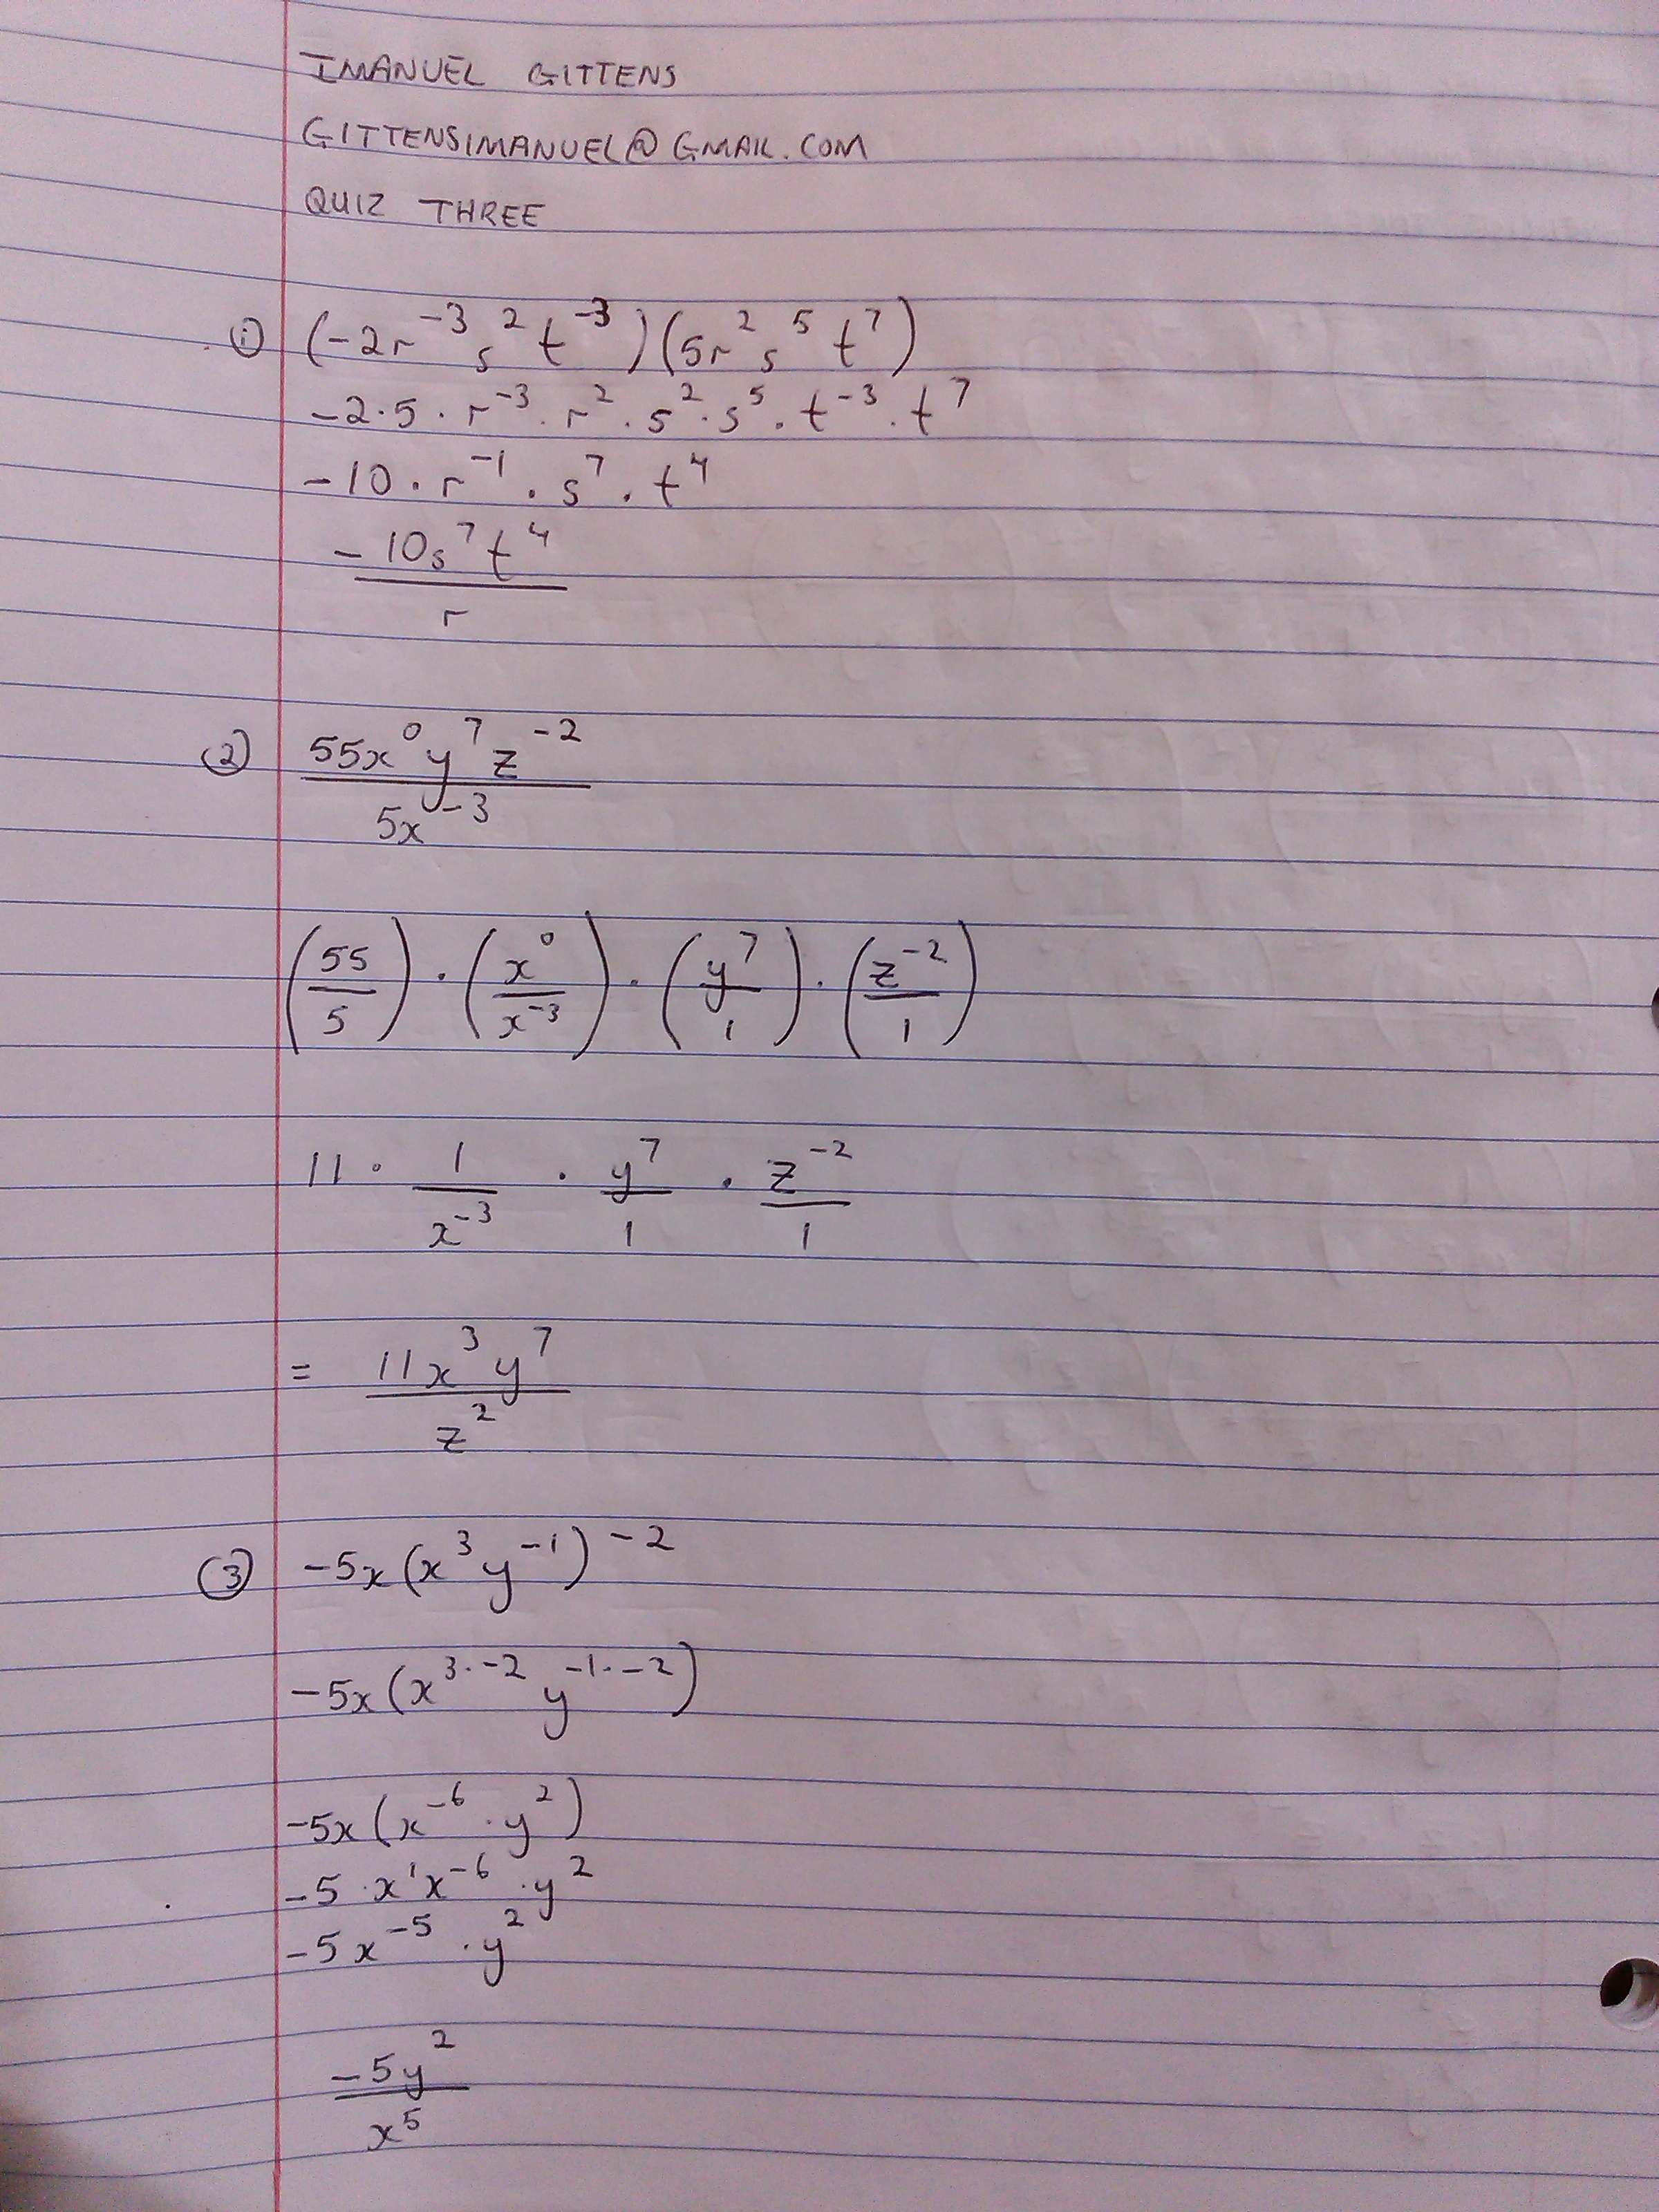 IMANUEL GITTENS
GITTENSIMANUEL@GMAIL.COM
QUIZ THREE
① (-2r⁻³s²t⁻³)(5r²s⁵t⁷)
-2·5·r⁻³·r²·s²·s⁵·t⁻³·t⁷
-10·r⁻¹·s⁷·t⁴
-10s⁷t⁴
r
② 55x⁰y⁷z⁻²
5x⁻³
(55/5)·(x⁰/x⁻³)·(y⁷/1)·(z⁻²/1)
11·1/x⁻³·y⁷/1·z⁻²/1
= 11x³y⁷
z²
③ -5x(x³y⁻¹)⁻²
-5x(x³·⁻²y⁻¹·⁻²)
-5x(x⁻⁶·y²)
-5·x¹x⁻⁶·y²
-5x⁻⁵·y²
-5y²
x⁵